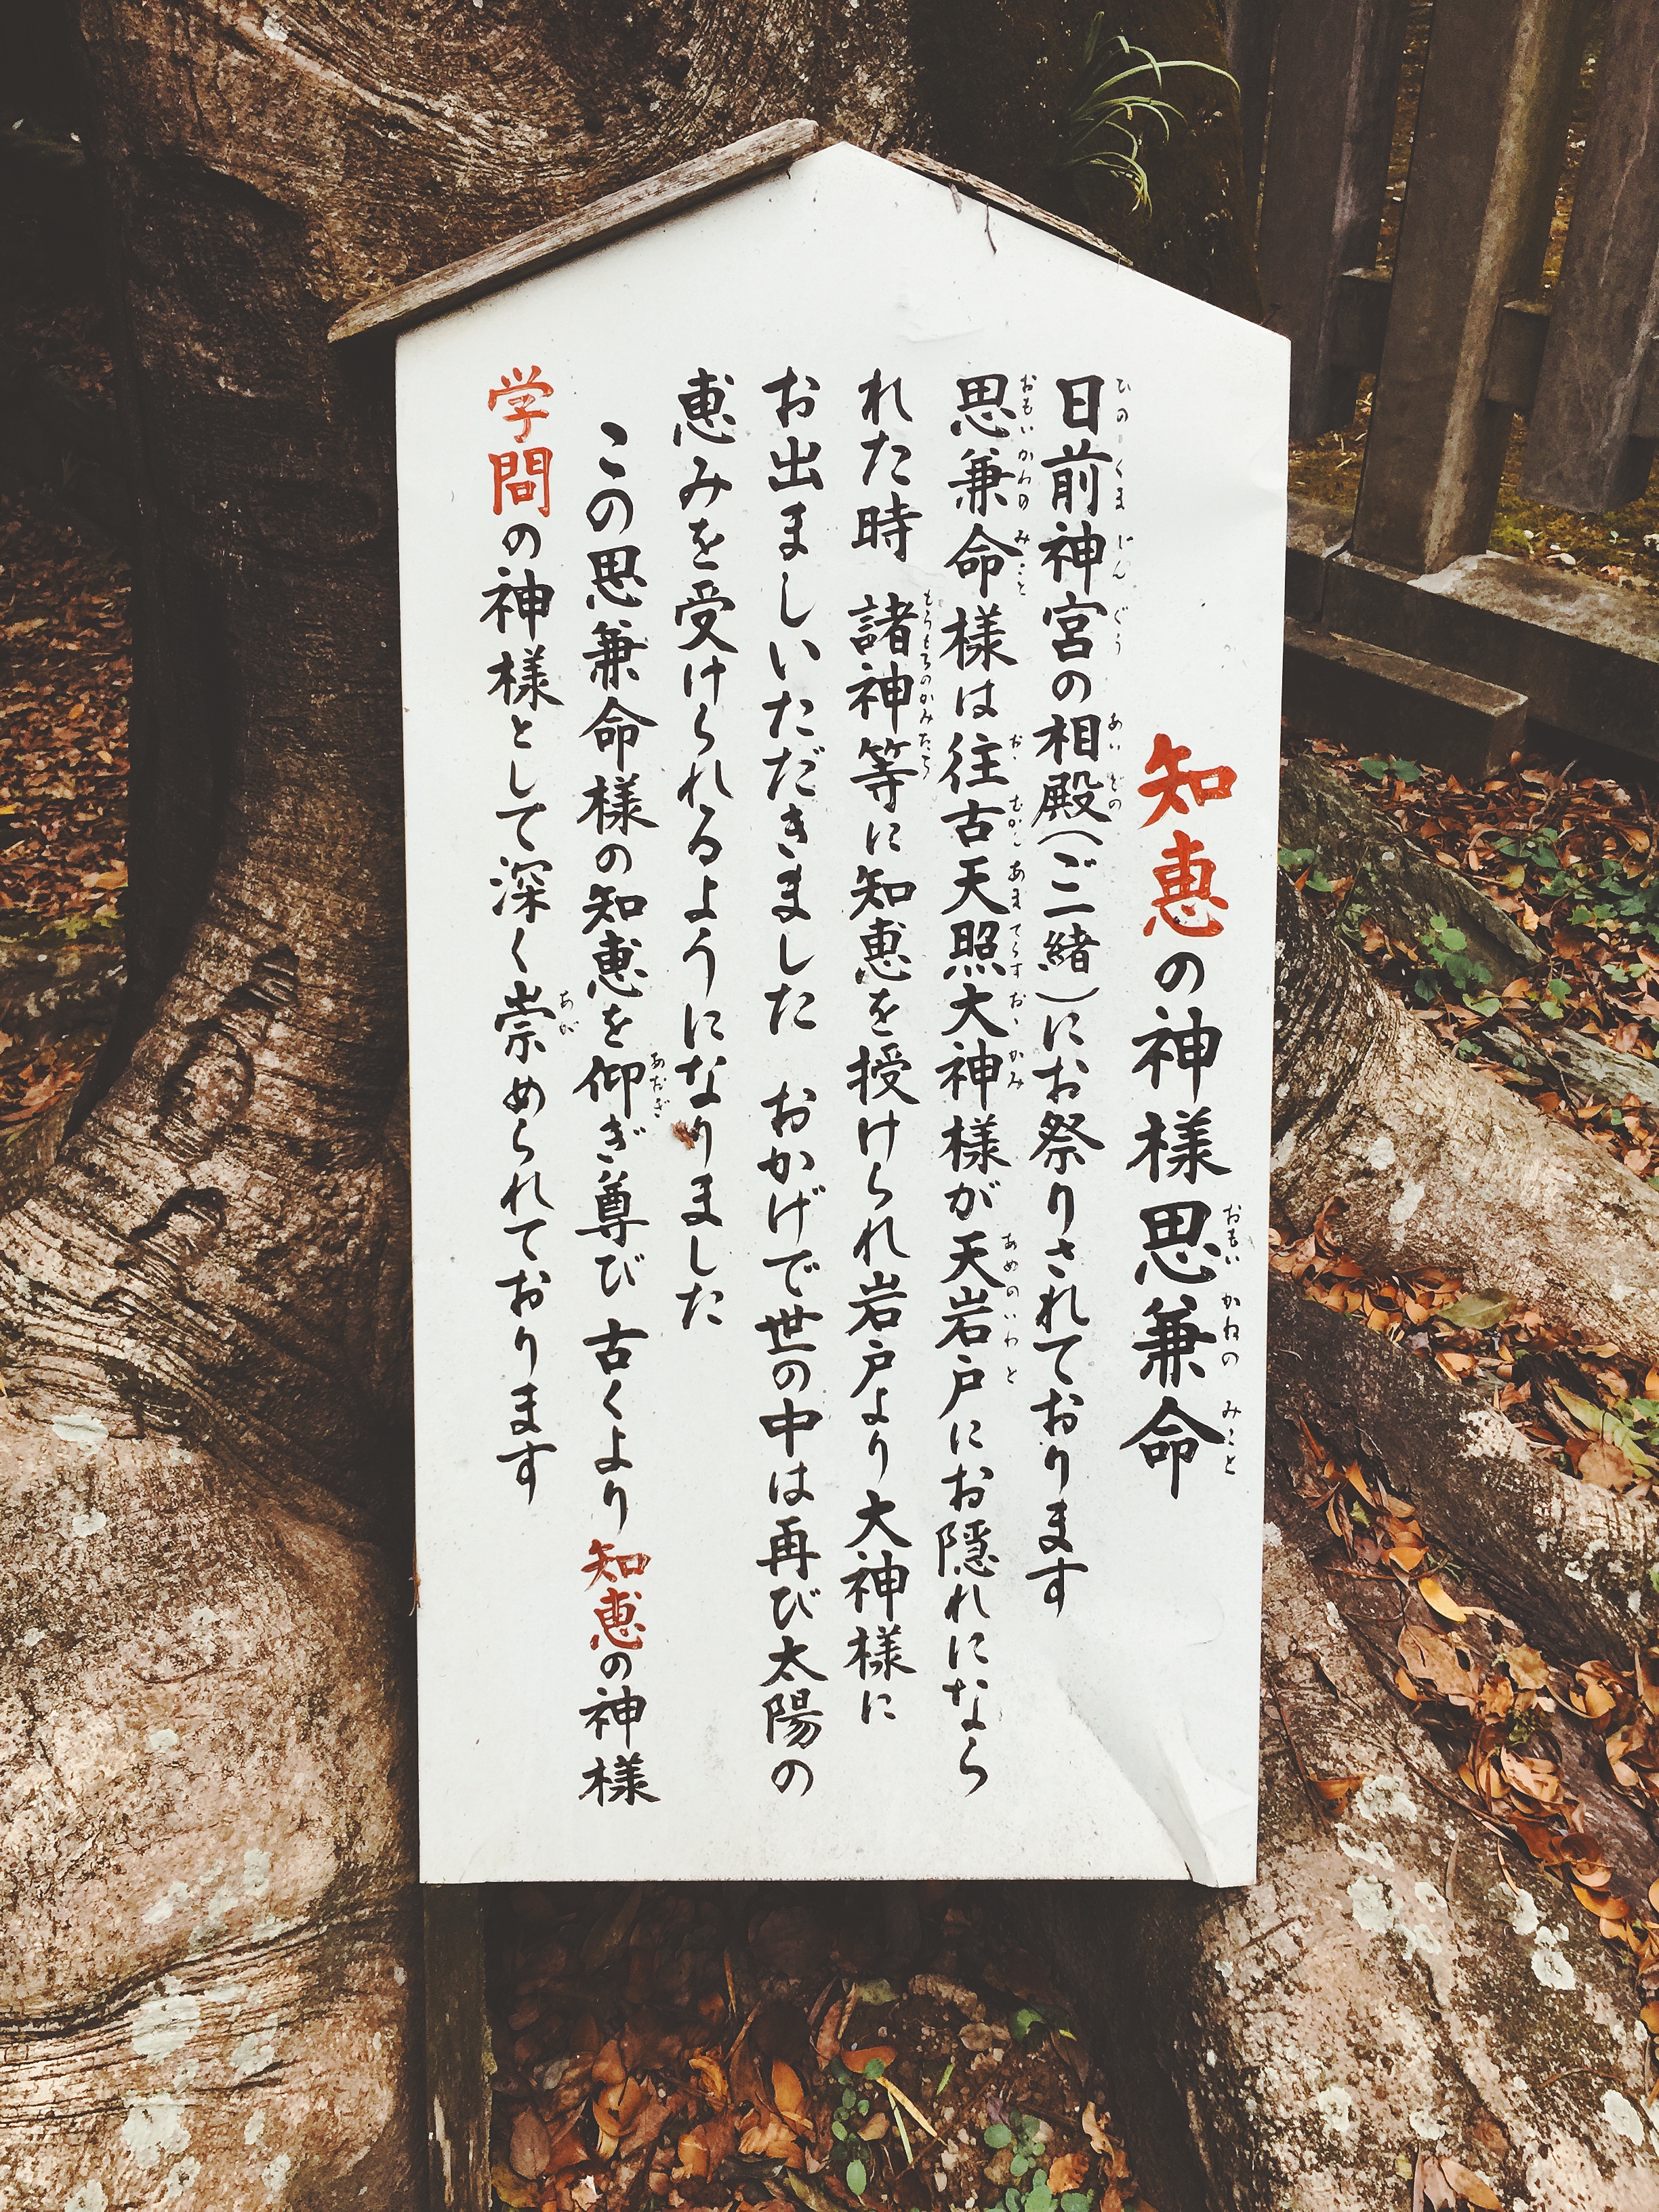 知恵の神様思兼命
日前神宮の相殿(ご一緒)にお祭りされております
思兼命様は往古天照大神様が天岩戸にお隠れになら
れた時 諸神等に知恵を授けられ岩戸より大神様に
お出ましいただきました おかげで世の中は再び太陽の
恵みを受けられるようになりました
この思兼命様の知恵を仰ぎ尊び 古くより知恵の神様
学問の神様として深く崇められております